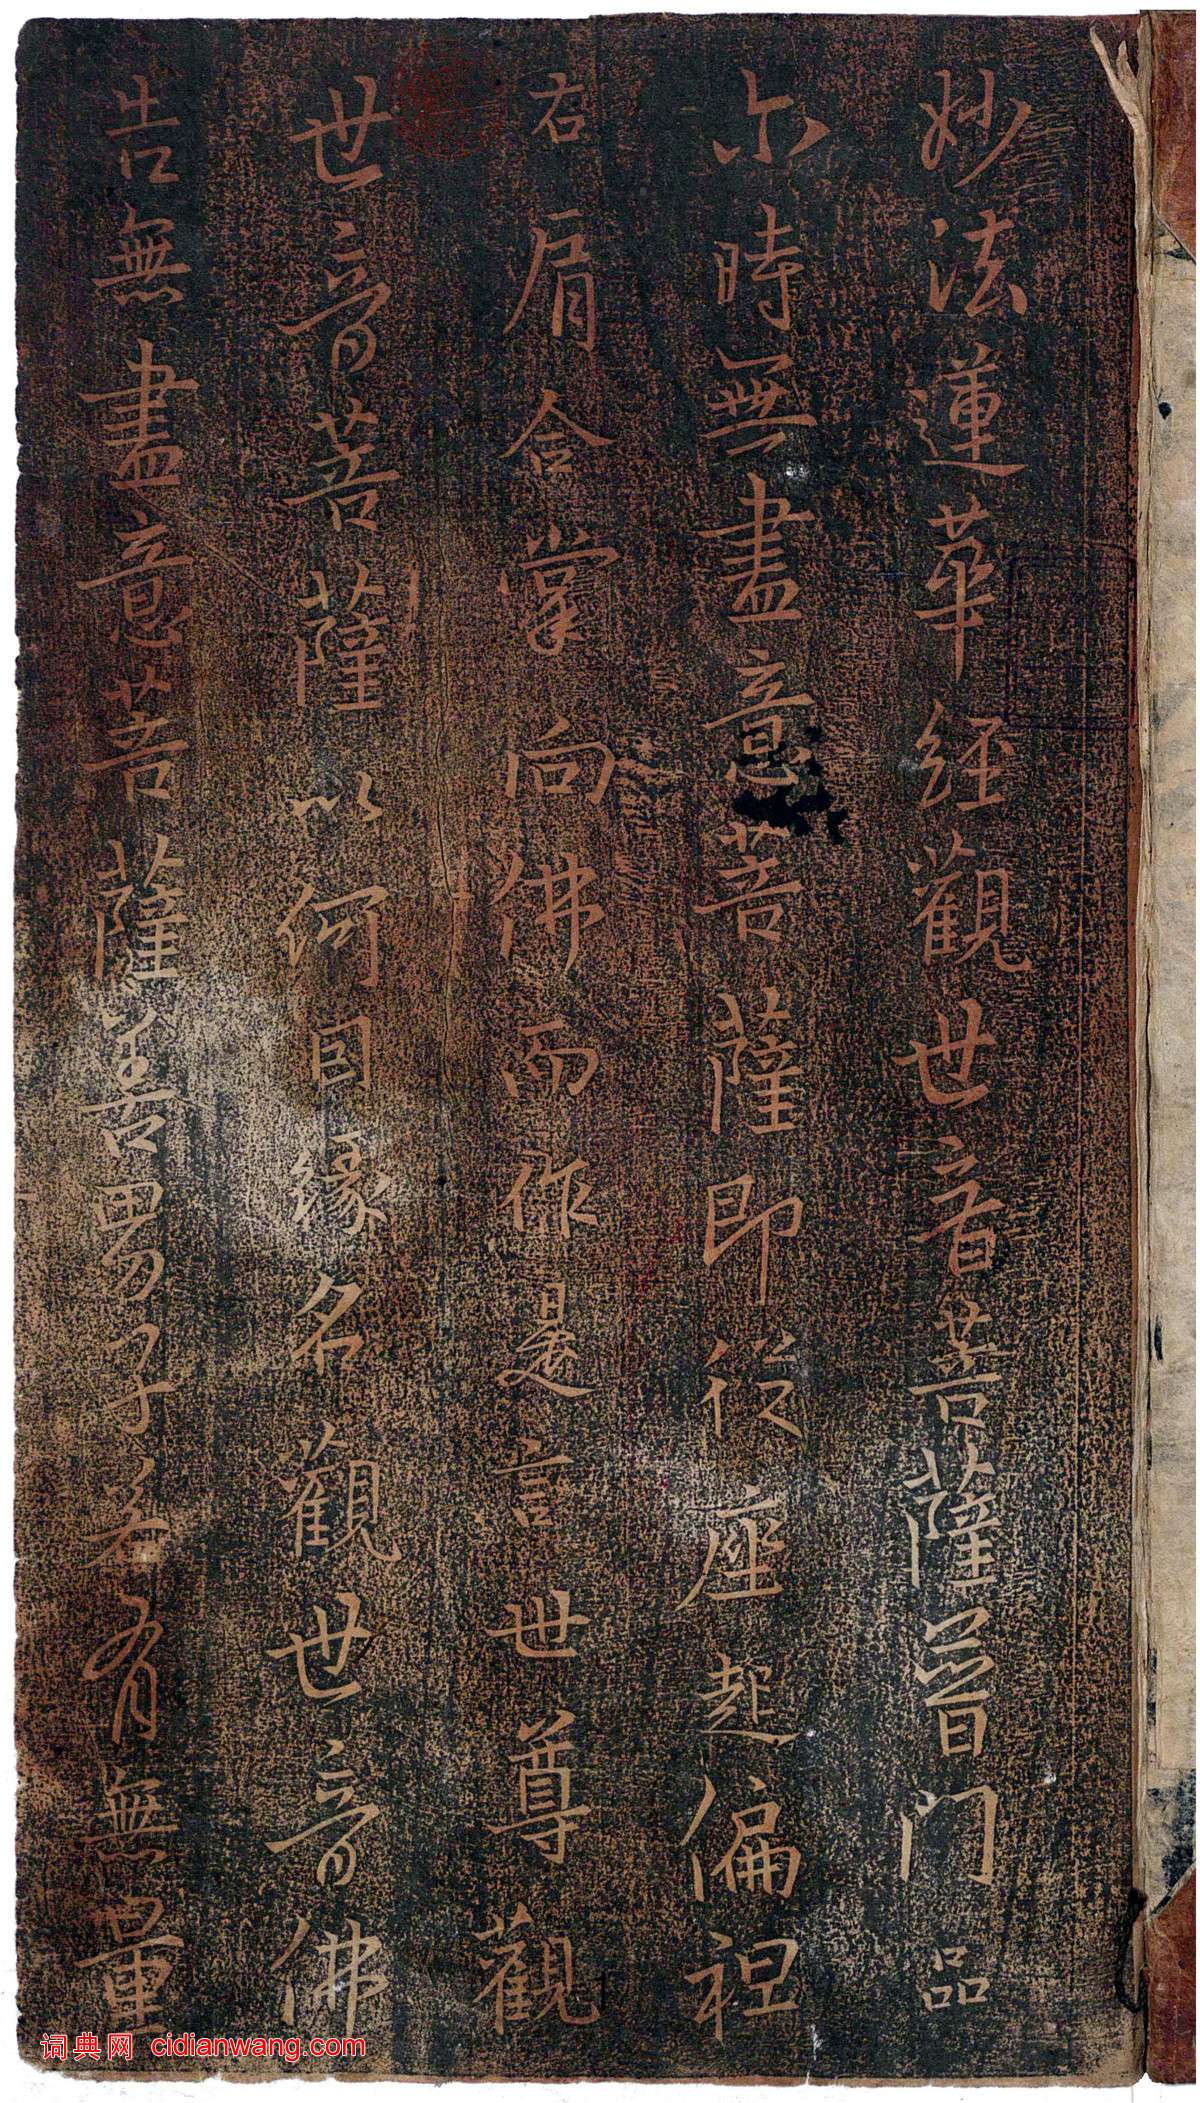 妙法蓮華經觀世音菩薩普門品
尒時無盡意菩薩即從座起偏袒
右肩合掌向佛而作是言世尊觀
世音菩薩以何因緣名觀世音佛
告無盡意菩薩善男子若有無量
词典网 cidianwang.com